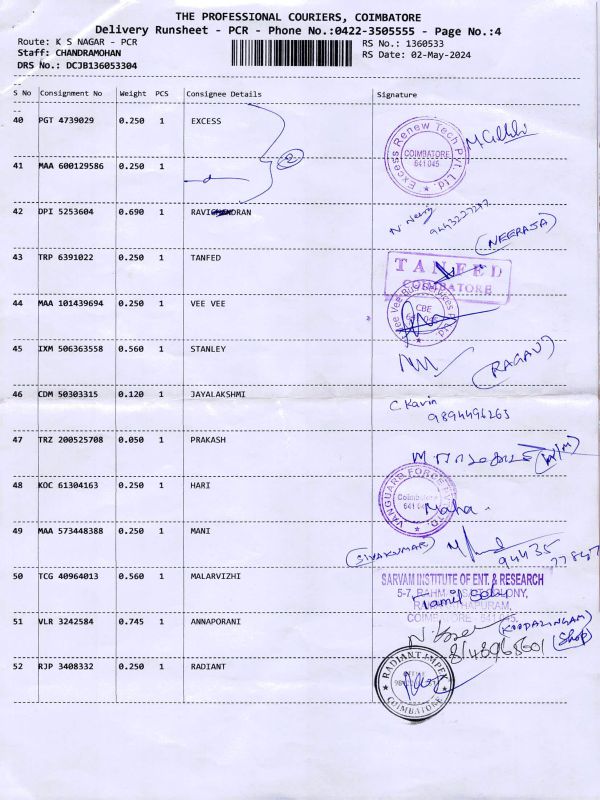 THE PROFESSIONAL COURIERS, COIMBATORE
Delivery Runsheet - PCR - Phone No.:0422-3505555 - Page No.:4
Route: K S NAGAR - PCR
RS No.: 1360533
Staff: CHANDRAMOHAN
RS Date: 02-May-2024
DRS No.: DCJB136053304
S No Consignment No Weight PCS Consignee Details Signature
40 PGT 4739029 0.250 1 EXCESS
Excess Renew Tech Pvt. Ltd.
COIMBATORE
641 045
41 MAA 600129586 0.250 1
2
42 DPI 5253604 0.690 1 RAVICHANDRAN
(NEERAJA)
43 TRP 6391022 0.250 1 TANFED
TANFED
COIMBATORE
44 MAA 101439694 0.250 1 VEE VEE
CBE
45 IXM 506363558 0.560 1 STANLEY
(RAGAV)
46 CDM 50303315 0.120 1 JAYALAKSHMI
C Kavin
9894496263
47 TRZ 200525708 0.050 1 PRAKASH
48 KOC 61304163 0.250 1 HARI
VANGUARD FORCE PVT LTD
Coimbatore
Maha
49 MAA 573448388 0.250 1 MANI
(SIVAKUMAR)
94435
77847
50 TCG 40964013 0.560 1 MALARVIZHI
SARVAM INSTITUTE OF ENT. & RESEARCH
51 VLR 3242584 0.745 1 ANNAPORANI
(Shop)
52 RJP 3408332 0.250 1 RADIANT
RADIANT IMPEX
COIMBATORE